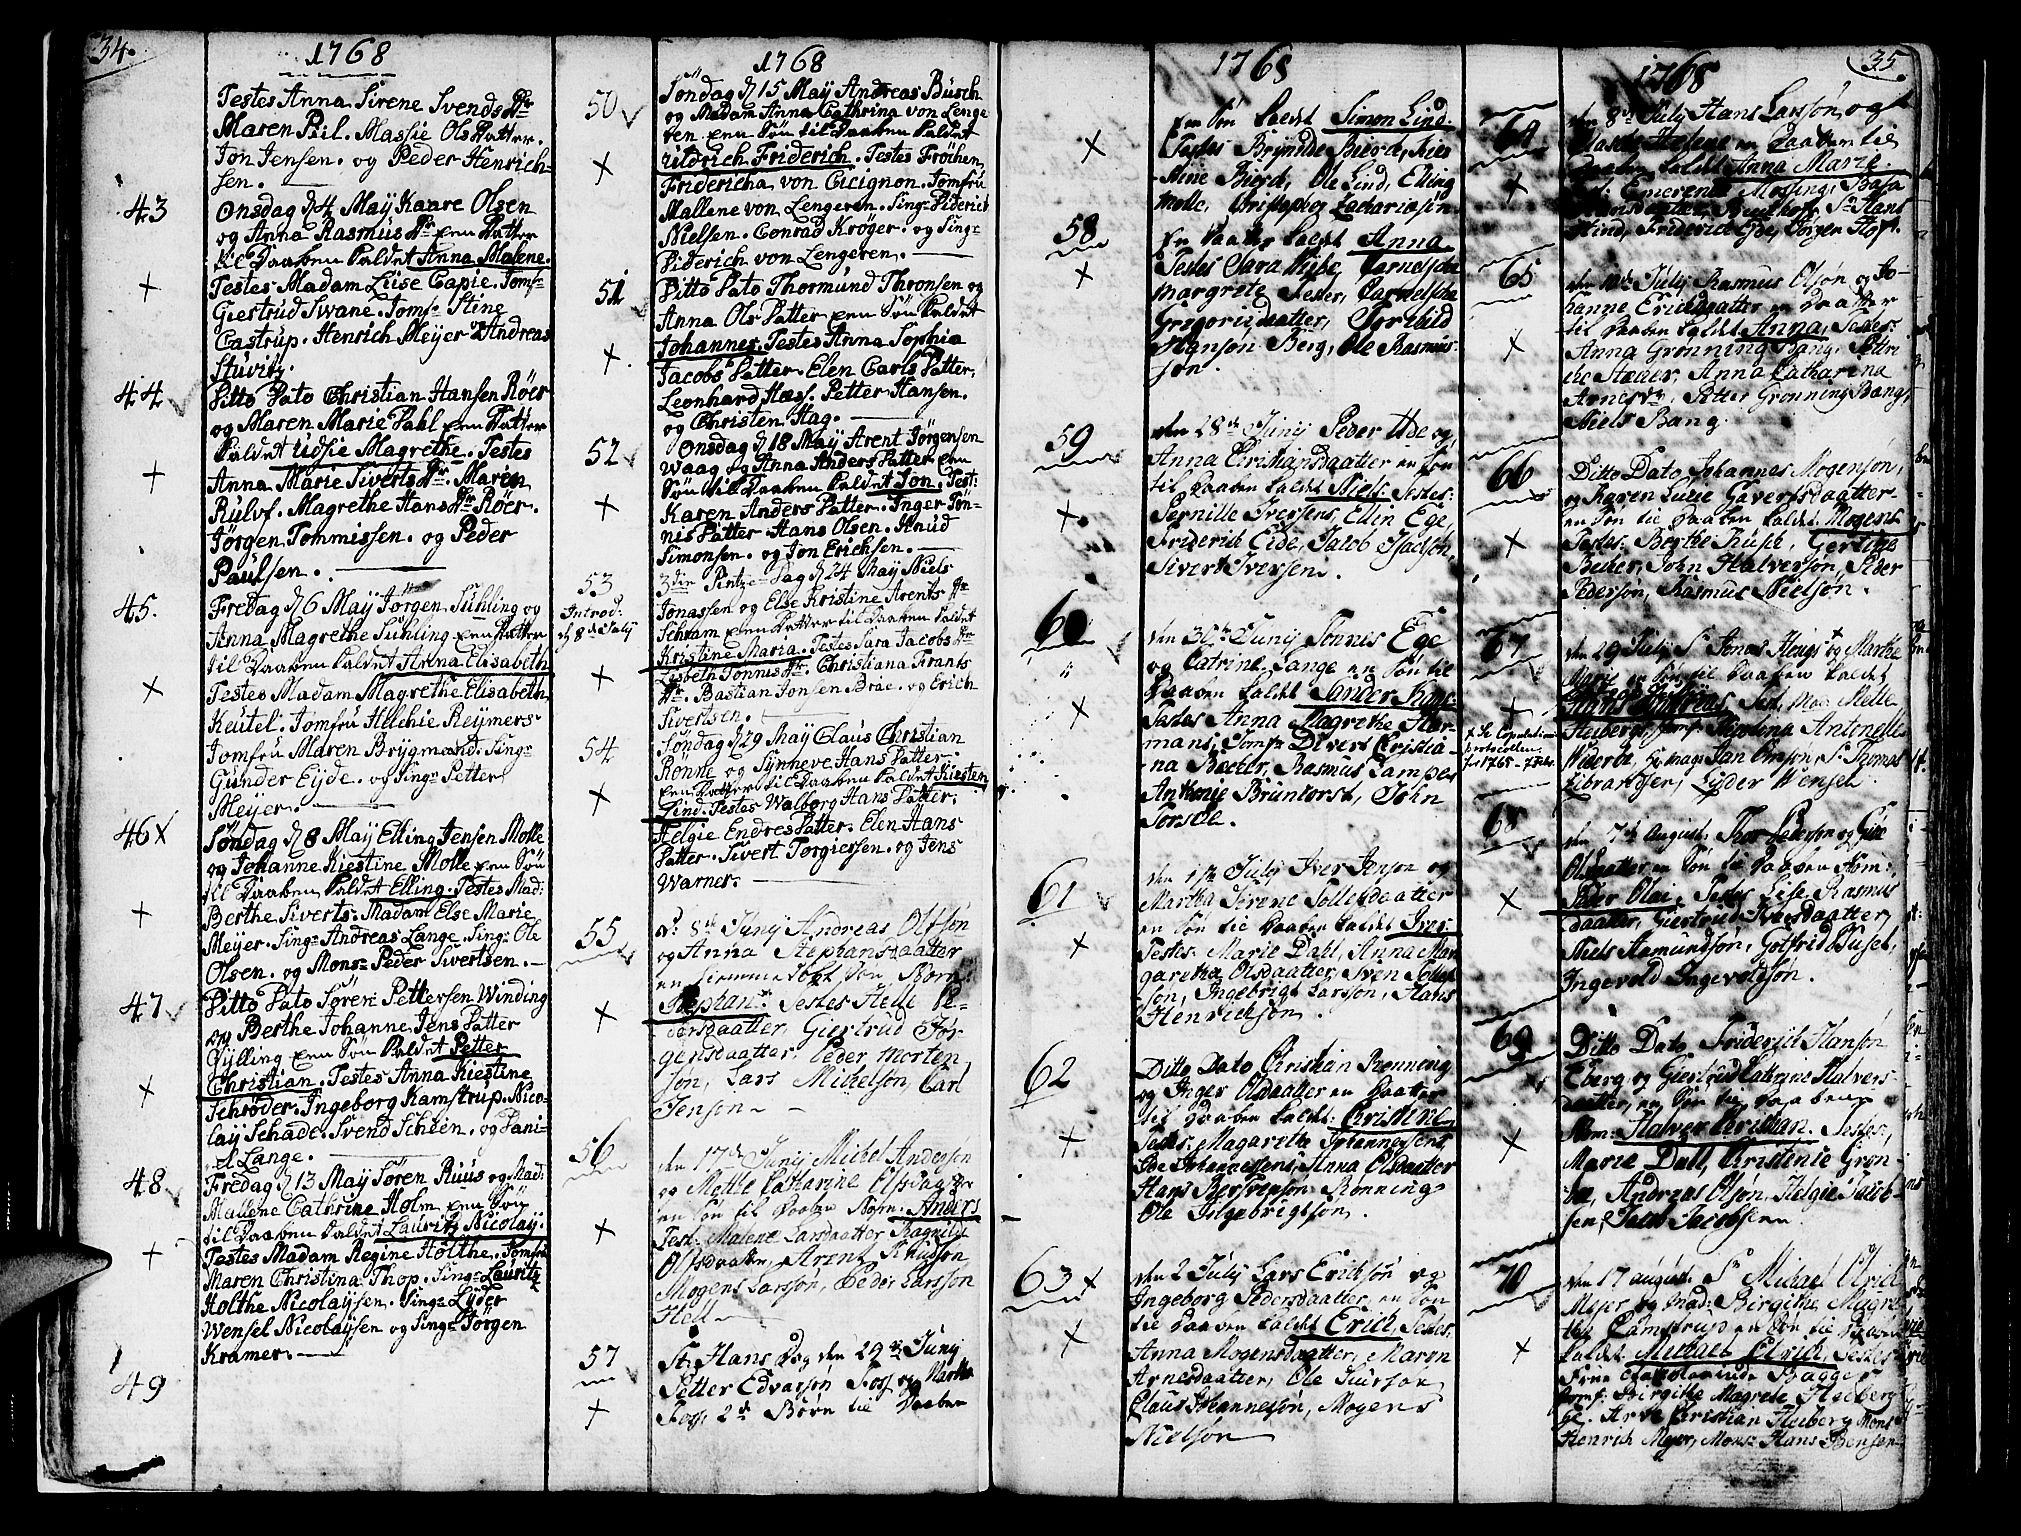 34.
1768
Testes Anna Sirene Svends Dr
Maren Piil. Massie Ols Datter.
Jon Jensen. og Peder Henrich-
sen.
43
Onsdag d 4 May Kaare Olsen
og Anna Rasmus Dr een Datter
til Daaben kaldet Anna Malene.
+
Testes Madam Liise Capie. Jomf:
Giertrud Swane. Jomf: Stine
Castrup. Henrich Meyer. Andreas
Stuvitz.
44
Ditto Dato Christian Hansen Röer
og Maren Marie Dahl een Datter
kaldet Udsie Magrethe. Testes
+
Anna Marie Siverts Dr. Maren
Rülvf. Magrethe Hans Dr Röer.
Jörgen Tommissen. og Peder
Paulsen.
45.
Fredag d 6 May Jörgen Sühling og
Anna Magrethe Sühling een Datter
til Daaben kaldet Anna Elisabeth
+
Testes Madam Magrethe Elisabeth
Keutel. Jomfru Illichie Reymers
Jomfru Maren Brygmand. Sing:
Günder Eyde. og Sing: Petter
Meyer.
46
Söndag d 8 May Elling Jensen Molle
og Johanne Kiestine Molle een Sön
til Daaben kaldet Elling. Testes Mad:
+
Berthe Siverts. Madam Else Marie
Meyer. Sing: Andreas Lange. Sing: Ole
Olsen. og Mons: Peder Sivertsen.
47
Ditto Dato Sören Pettersen Winding
og Berthe Johanne Jens Datter
Gylling een Sön kaldet Petter
+
Christian. Testes Anna Kiestine
Schröder. Ingeborg Kamstrup. Nico-
lay Schade. Svend Schöen. og Dani-
el Lange.
48
Fredag d 13 May Sören Ruus og Mad:
Mallene Cathrine Holm een Sön
til Daaben kaldet Lauritz Nicolay.
+
Testes Madam Regine Holthe. Jomfru
Maren Christina Thop. Sing: Lauritz
Holthe Nicolaysen. Sing: Lyder
Wensel Nicolaysen og Sing: Jörgen
Kramer.
49
1768
50
Söndag d 15 May Andreas Büsch
og Madam Anna Cathrina von Lenge
ren een Sön til Daaben kaldet
+
Friderich. Testes Fröhen
Fridericha von Cicignon. Jomfru
Mallene von Lengeren. Sing: Diderich
Nielsen. Conrad Kröger. og Sing:
Diderich von Lengeren.
51
Ditto Dato Thormund Thronsen og
Anna Ols Datter een Sön kaldet
+
Johannes. Testes Anna Sophia
Jacobs Datter. Elen Carls Datter.
Leonhard Hæss. Petter Hansen.
og Christen Hag.
52
Onsdag d 18 May Arent Jörgensen
Waag og Anna Anders Datter een
Sön til Daaben kaldet Jon. Test:
+
Karen Anders Datter. Inger Tön-
nis Datter Hans Olsen. Knud
Simonsen. og Jon Erichsen.
53
Introd:
d 8 de July
3die Pintze-Dag d 24 May Niels
Jonassen og Else Kristine Arents Dr
Schram een Datter til Daaben kaldet
Kristine Maria. Testes Sara Jacobs Dr
+
Lisbeth Tonnus Dr. Christiana Frants
Dr. Bastian Jonsen Brae. og Erich
Sivertsen.
54
Söndag d 29 May Claus Christian
Rönne og Synneve Hans Datter
een Datter til Daaben kaldet Kiesten
+
Lind. Testes Walborg Hans Datter.
Helgie Endres Datter. Elen Hans
Datter. Sivert Torgiersen. og Jens
Warner.
55
d. 8de Junij Andreas Olssön
og Anna Stephansdaatter
en hiemme döbt Sön Nom:
+
Stephan. Testes Hede Pe-
dersdaatter, Giertrud Jör-
gensdaatter. Peder Morten
sön, Lars Michelsön, Carl
Jensön
56
den 17de Junij Michel Andersen
og Mette Catharine Olsdaatter
en Sön til Daaben Nom: Anders
+
Test: Malene Larsdaatter Ragnilde
Olsdaatter Arent Knudsön
Mogens Larsön, Peder Larsson
Hell
57
St. Hans Dag den 29de Junij
Petter Edvarsön Foss og Martha
+
Foss 2de Börn til Daaben
1768
en Sön kaldet Simon Lind.
+
Testes Brynilde Bierch, Kies
tine Bierch, Ole Lind, Elling
Molle, Cristopher Zachariæsön
58
En Daatter kaldet Anna
+
Testes Sara Vibe, Carnelscha
Margrete Feser, Carnelscha
Gregoriidaatter, Torchild
Hansön Berg, Ole Rasmus-
sön.
59
den 28de Junij Peder Ude og
Anna Cristiansdaatter en Sön
til Daaben kaldet Niels. Testes:
+
Pernille Iversens, Ellin Ege,
Friderich Eide, Jacob Isachsön,
Sivert Iversen.
60
den 30te Junij Tönnis Ege
og Catrine Lange en Sön til
Daaben kaldet Sander Hans
+
Testes Anna Magrethe Har-
mans, Jomfr Divert Cristia-
na Becker, Rasmus Campes
Anthonie Bruntorst, John
Torsde.
61
den 1ste Julij Iver Jenson og
Martha Sirene Tollesdaatter
en Sön til Daaben kaldet Iver.
+
Testes. Marie Dahl, Anna Mar
garetha Olsdaatter, Sven Tolles
sön, Ingebrigt Larssön, Hans
Henrichsön.
62
Ditto Dato Christian Rönning
og Inger Olsdaatter en Daatter
til Daaben kaldet: Christine
+
Testes: Magarethe Johannessens
Ide Johannessens, Anna Olsdaatter
Hans Bertensön Rönning
Ole Ingebrigtsön.
63
den 2 Julij Lars Ericksön og
Ingeborg Pedersdaatter, en Sön
til Daaben kaldet Erich, Testes.
+
Anna Mogensdaatter, Maren
Arnesdaatter, Ole Iversön
Claus Johannesön, Mogens
Nielsön
35.
1768
64
den 8de Julij Hans Larssön og
en Daatter til
+
Daaben kaldet Anna Marie.
Test. Emerense Mossing, Basa
Sr Hans
Hind, Friderich Eyde, Jörgen Hop.
65
den 10de Julij Rasmus Olsön og Jo-
hanne Erichsdaatter en Daatter
til Daaben kaldet Anna, Testes:
+
Anna Grönning Bang, Petri
che Stæder, Anna Catharina
Arnesdr, Petter Grönning Bang,
Niels Bang.
66
Ditto Dato Johannes Mogensön,
og Karen Lucie Gavertsdaatter
en Sön til Daaben kaldt. Mogens
+
Testes: Berthe Rusch, Gertine
Becker, John Halversön, Peder
Pedersön, Rasmus Nielsön.
67
den 29 Julij Sr Jonas Hengs+ og Marthe
Marie en Sön til Daaben kaldet
+
Test. Mad Mette
+ Se Copulations
protocollen
for 1765 - 7 Febr
Heiberg, Jomf Nicolina Antonette
Wideröe, Hr Mag: Jan Omsön, Sr Thomas
Librantzer, Lyder Wensel
68
den 7de August. Thor Pedersen og Gue
Olsdaatter en Sön til Daaben Nom:
+
Peder Olai, Testes Lise Rasmus
daatter, Giertrud Iversdaatter,
Niels Asmundsön, Gotfrid Tusel,
Ingevold Ingevoldsön.
69
Ditto Dato Friderich Hansön
Eberg og Giertrud Catrine Halvers-
daatter, en Sön til Daaben
+
Nom: Halver Cristian. Testes,
Marie Dahl, Christenie Grön-
be, Andreas Olsön, Helgie Jacob-
sen, Jacob Jacobsen.
70
den 17 august. Sr Michael Elrich
Meyer og Mad: Birgithe Magre
the Camstrup en Sön til Daaben
+
kaldet Michael Elrich. Testes
Frue Etatsraadinde Bagger
Jomf: Birgithe Magrete Heiberg
Hr. Arve Christian Heiberg Mons:
Henrich Meyer, Mons: Hans Bensen